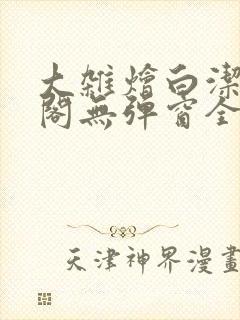 大雑燴白潔
閣無彈窗全
天津神界漫畫